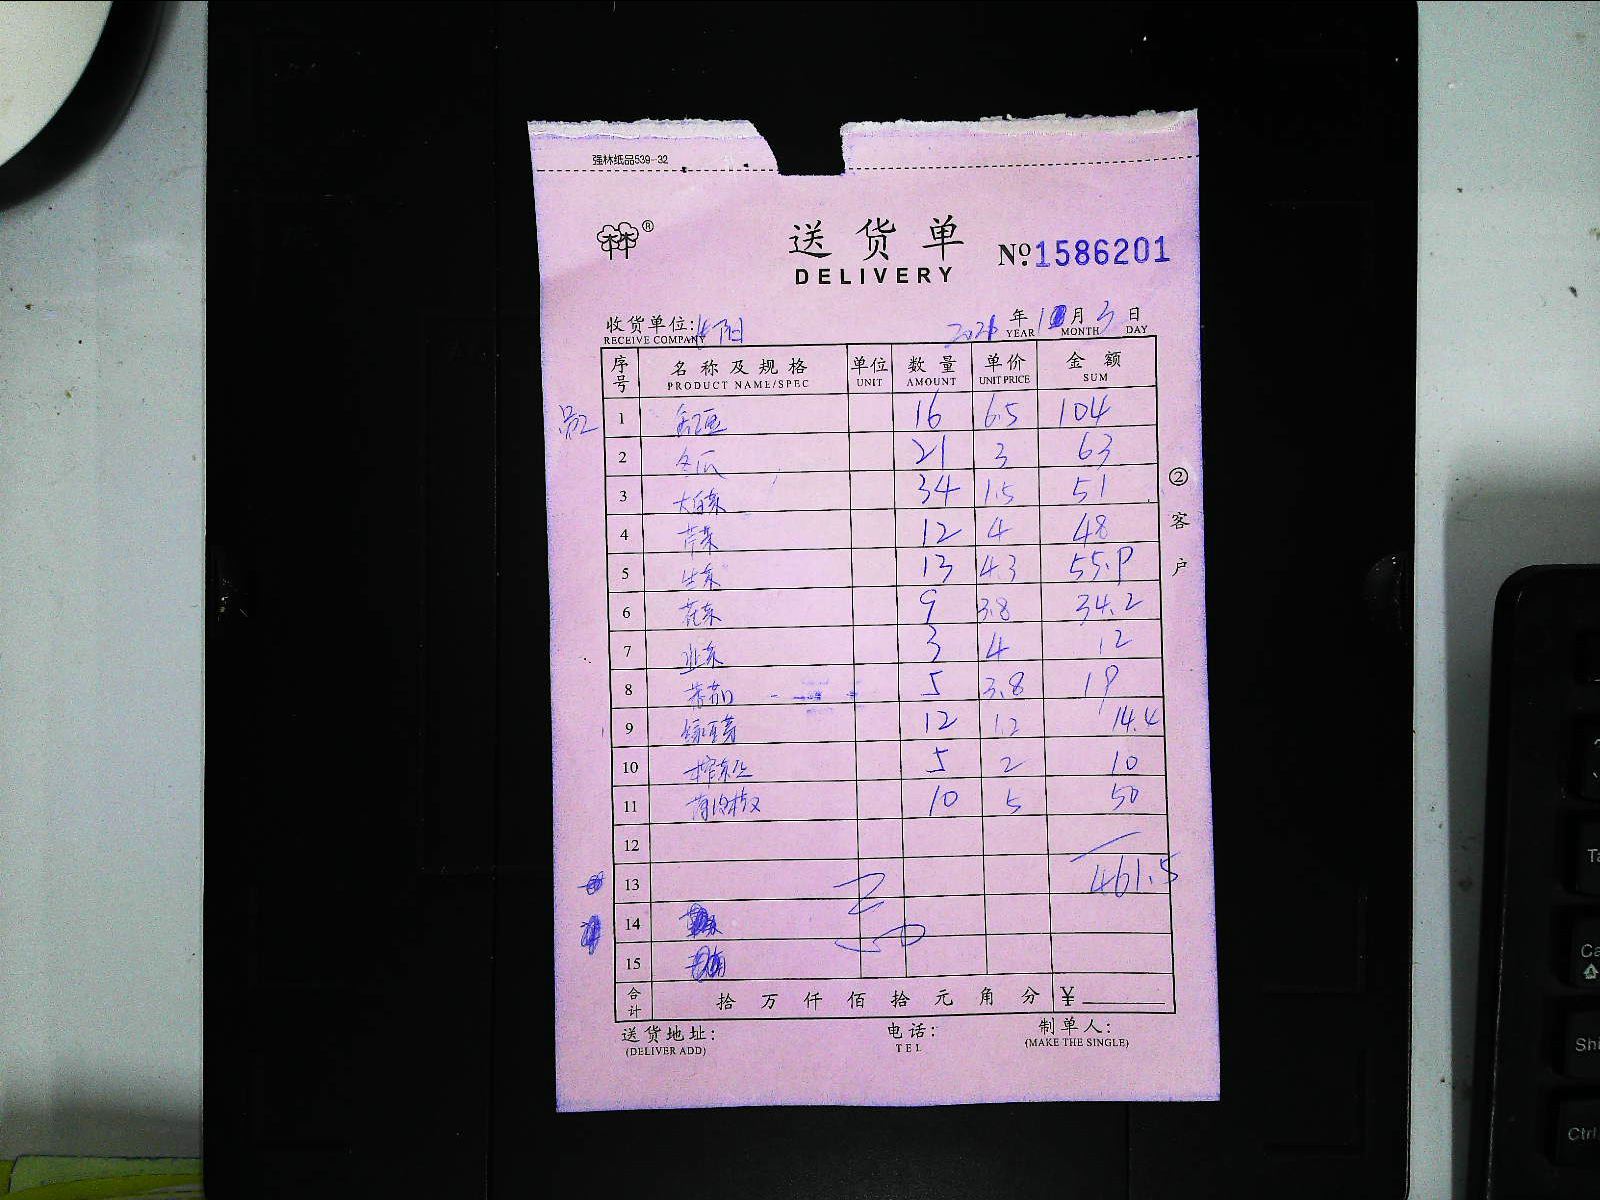 强林纸品539-32
林林®
送货单
DELIVERY
№:1586201
收货单位:
RECEIVE COMPANY
2021年1月3日
YEAR MONTH DAY
序号 名称及规格 单位 数量 单价 金额
PRODUCT NAME/SPEC UNIT AMOUNT UNIT PRICE SUM
1 16 6.5 104
2 冬瓜 21 3 63
3 大白菜 34 1.5 51
4 芹菜 12 4 48
5 生菜 13 4.3 55.9
6 花菜 9 3.8 34.2
7 3 4 12
8 番茄 5 3.8 19
9 绿豆芽 12 1.2 14.4
10 榨菜丝 5 2 10
11 10 5 50
12
13 461.5
14
15
②客户
合计 拾万仟佰拾元角分 ¥
送货地址: 电话: 制单人:
(DELIVER ADD) TEL (MAKE THE SINGLE)
Ta
Ca
Shi
Ctrl